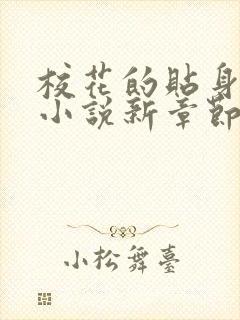 校花的貼身
小說新章節
小松舞臺